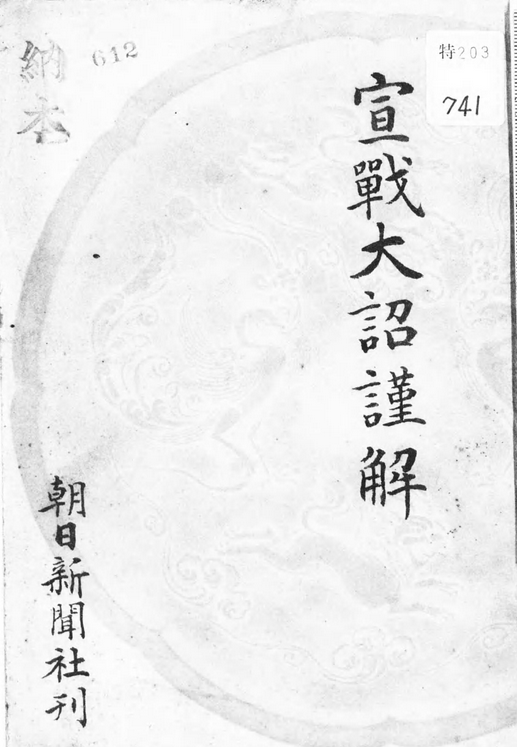 特203
741
宣戰大詔謹解
612
納本
朝日新聞社刊